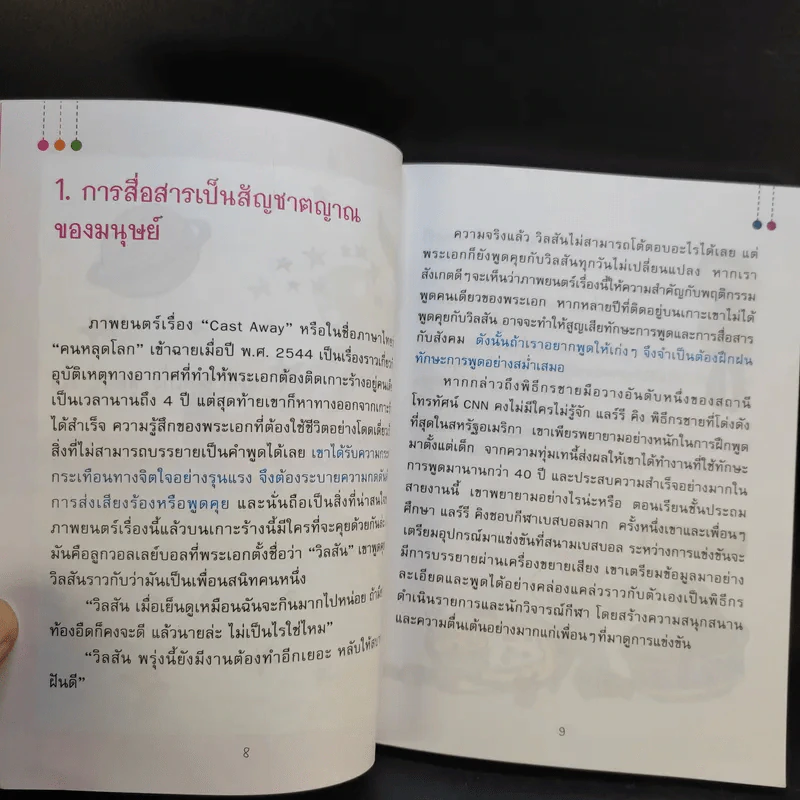 1. การสื่อสารเป็นสัญชาตญาณ
ของมนุษย์
ภาพยนตร์เรื่อง “Cast Away” หรือในชื่อภาษาไทย
“คนหลุดโลก” เข้าฉายเมื่อปี พ.ศ. 2544 เป็นเรื่องราวเกี่ยวกับ
อุบัติเหตุทางอากาศที่ทำให้พระเอกต้องติดเกาะร้างอยู่คนเดียว
เป็นเวลานานถึง 4 ปี แต่สุดท้ายเขาก็หาทางออกจากเกาะ
ได้สำเร็จ ความรู้สึกของพระเอกที่ต้องใช้ชีวิตอย่างโดดเดี่ยว
สิ่งที่ไม่สามารถบรรยายเป็นคำพูดได้เลย เขาได้รับความ
กระเทือนทางจิตใจอย่างรุนแรง จึงต้องระบายความกดดัน
การส่งเสียงร้องหรือพูดคุย และนั่นถือเป็นสิ่งที่น่าสนใจ
ภาพยนตร์เรื่องนี้แล้วบนเกาะร้างนี้มีใครที่จะคุยด้วยกัน
มันคือลูกวอลเลย์บอลที่พระเอกตั้งชื่อว่า “วิลสัน” เขาพูดคุย
วิลสันราวกับว่ามันเป็นเพื่อนสนิทคนหนึ่ง
“วิลสัน เมื่อเย็นดูเหมือนฉันจะกินมากไปหน่อย ถ้า
ท้องอืดก็คงจะดี แล้วนายล่ะ ไม่เป็นไรใช่ไหม”
“วิลสัน พรุ่งนี้ยังมีงานต้องทำอีกเยอะ หลับให้สบาย
ฝันดี”
8
ความจริงแล้ว วิลสันไม่สามารถโต้ตอบอะไรได้เลย แต่
พระเอกก็ยังพูดคุยกับวิลสันทุกวันไม่เปลี่ยนแปลง หากเรา
สังเกตดีๆจะเห็นว่าภาพยนตร์เรื่องนี้ให้ความสำคัญกับพฤติกรรม
พูดคนเดียวของพระเอก หากหลายปีที่ติดอยู่บนเกาะเขาไม่ได้
พูดคุยกับวิลสัน อาจจะทำให้สูญเสียทักษะการพูดและการสื่อสาร
กับสังคม ดังนั้นถ้าเราอยากพูดให้เก่งๆ จึงจำเป็นต้องฝึกฝน
ทักษะการพูดอย่างสม่ำเสมอ
หากกล่าวถึงพิธีกรชายมือวางอันดับหนึ่งของสถานี
โทรทัศน์ CNN คงไม่มีใครไม่รู้จัก แลร์รี คิง พิธีกรชายที่โด่งดัง
ที่สุดในสหรัฐอเมริกา เขาเพียรพยายามอย่างหนักในการฝึกพูด
มาตั้งแต่เด็ก จากความทุ่มเทนี้ส่งผลให้เขาได้ทำงานที่ใช้ทักษะ
การพูดมานานกว่า 40 ปี และประสบความสำเร็จอย่างมากใน
สายงานนี้ เขาพยายามอย่างไรน่ะหรือ ตอนเรียนชั้นประถม
ศึกษา แลร์รี คิงชอบกีฬาเบสบอลมาก ครั้งหนึ่งเขาและเพื่อนๆ
เตรียมอุปกรณ์มาแข่งขันที่สนามเบสบอล ระหว่างการแข่งขันจะ
มีการบรรยายผ่านเครื่องขยายเสียง เขาเตรียมข้อมูลมาอย่าง
ละเอียดและพูดได้อย่างคล่องแคล่วราวกับตัวเองเป็นพิธีกร
ดำเนินรายการและนักวิจารณ์กีฬา โดยสร้างความสนุกสนาน
และความตื่นเต้นอย่างมากแก่เพื่อนๆที่มาดูการแข่งขัน
9